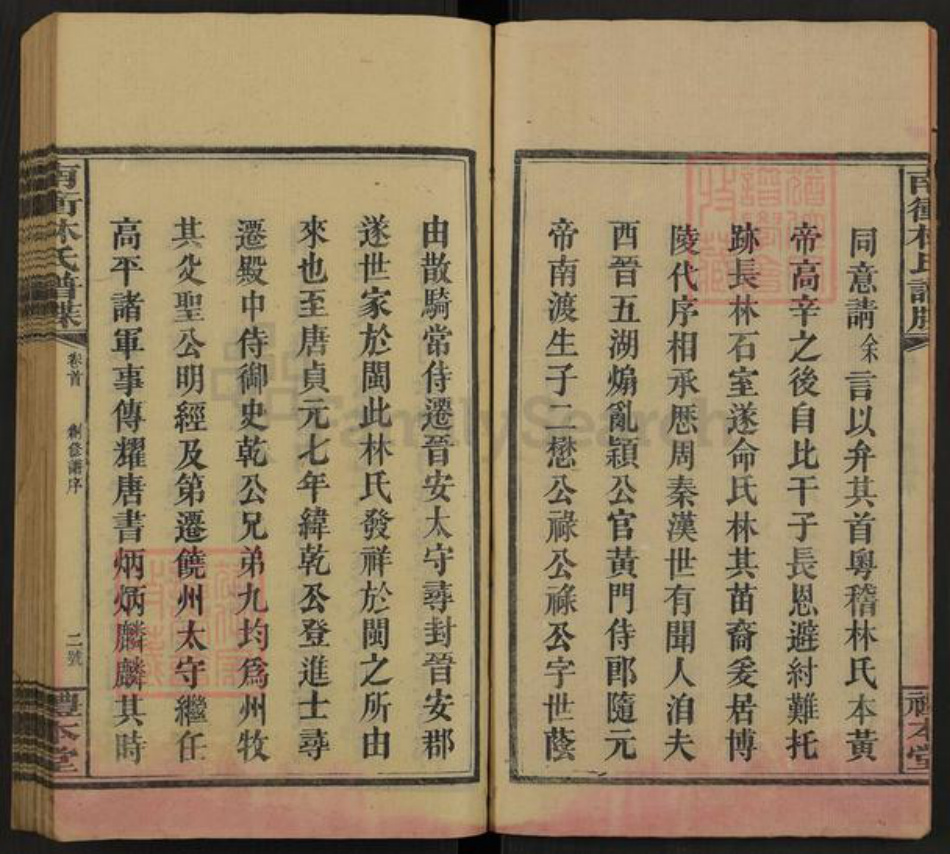 同意請余言以弁其首粵稽林氏本黃
帝高辛之後自比干子長恩避紂難托
跡長林石室遂命氏林其苗裔爰居博
陵代序相承歷周秦漢世有聞人洎夫
西晉五湖煽亂穎公官黃門侍郎隨元
帝南渡生子二懋公祿公祿公字世蔭
由散騎常侍遷晉安太守尋封晉安郡
遂世家於閩此林氏發祥於閩之所由
來也至唐貞元七年緯乾公登進士尋
遷殿中侍御史乾公兄弟九均爲州牧
其次聖公明經及第遷饒州太守繼任
高平諸軍事傳耀唐書炳炳麟麟其時
南衝林氏譜牒
卷首
創修譜序
二號
禮本堂
FamilySearch